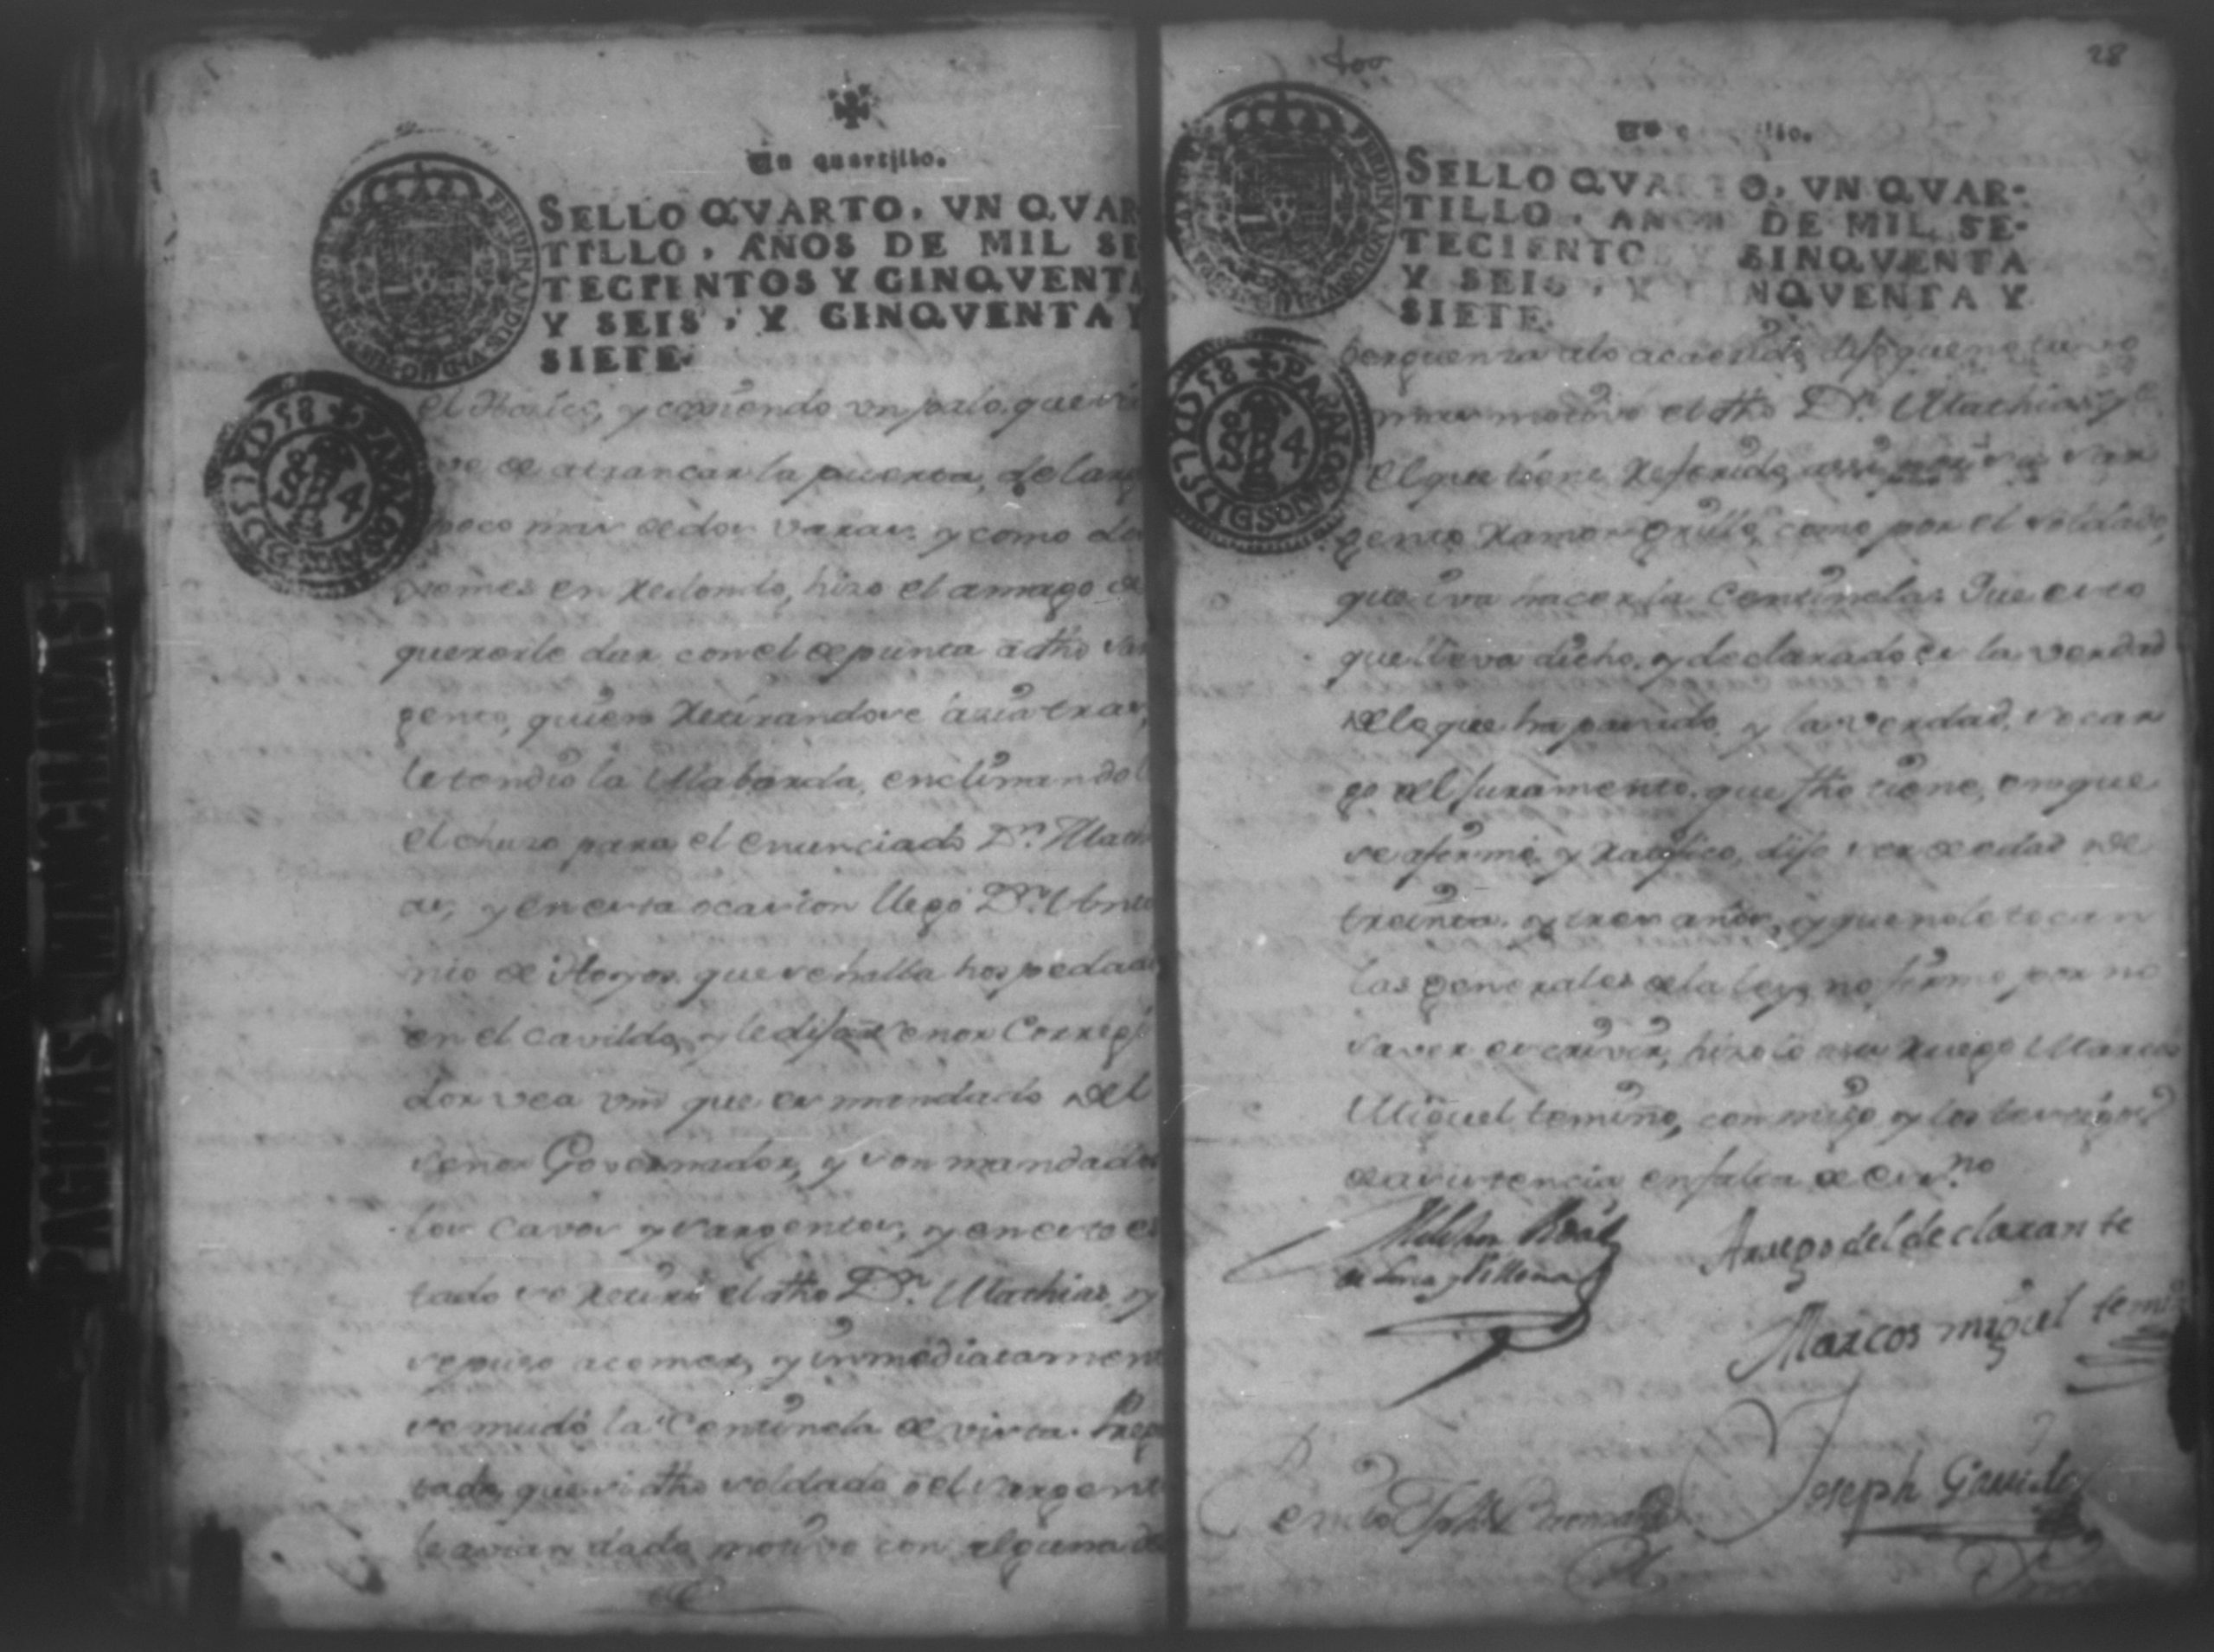 Un quartillo.
SELLO QVARTO, VN QVAR
TILLO, AÑOS DE MIL SE
TECIENTOS Y CINQVENTA
Y SEIS, Y CINQVENTA Y
SIETE.
y coxiendo un palo, que
de atrancar la puerta, de larg
poco mas de dos varas, y como de
en redondo, hizo el amago de
quererle dar con el de punta a dho Sar
gento, quien retirandose ázia tras,
le tendio la Alabarda, enclinandol
el chuzo para el enunciado Dn. Mathi
as, y en esta ocasion llegó Dn. Anto
nio de Hoyos que se halla hospedad
en el cavildo, y le dijo Señor Corregi
dor vea vmd que es mandado del
Señor Governador, y son mandados
los cavos y Sargentos, y en esto es
tado se retiró el dho Dn. Mathias, y
se puso a comer, y inmediatamen
se mudó la Centinela de vista. Preg
tado que si dho soldado ó el Sargent
le avian dado motivo con alguna de
28
SELLO QVARTO, VN QVAR-
TILLO, AÑOS DE MIL SE-
TECIENTOS Y SINQVENTA
Y SEIS, Y CINQVENTA Y
SIETE.
berguenza a lo acaesido dijo que no tuvo
mas motivo el dho Dn. Mathias
el que tiene referido, Sar
gento Ramon Grillo, como por el soldado,
que iva hacer la Centinela. Que esto
que lleva dicho, y declarado es la verdad
de lo que ha pasado, y la verdad, so car
go del juramento que fho tiene, en que
se afirmó, y ratifico, dijo ser de edad de
treinta y tres años, y que no le tocan
las generales de la ley, no firmó por no
saver escrivir, hizolo a su ruego Marcos
Miguel temiño, conmigo y los testigos
de asistencia en falta de Essno
Melchor Vidal
de Lorca y Villena
A ruego del declarante
Marcos miguel temi
Joseph